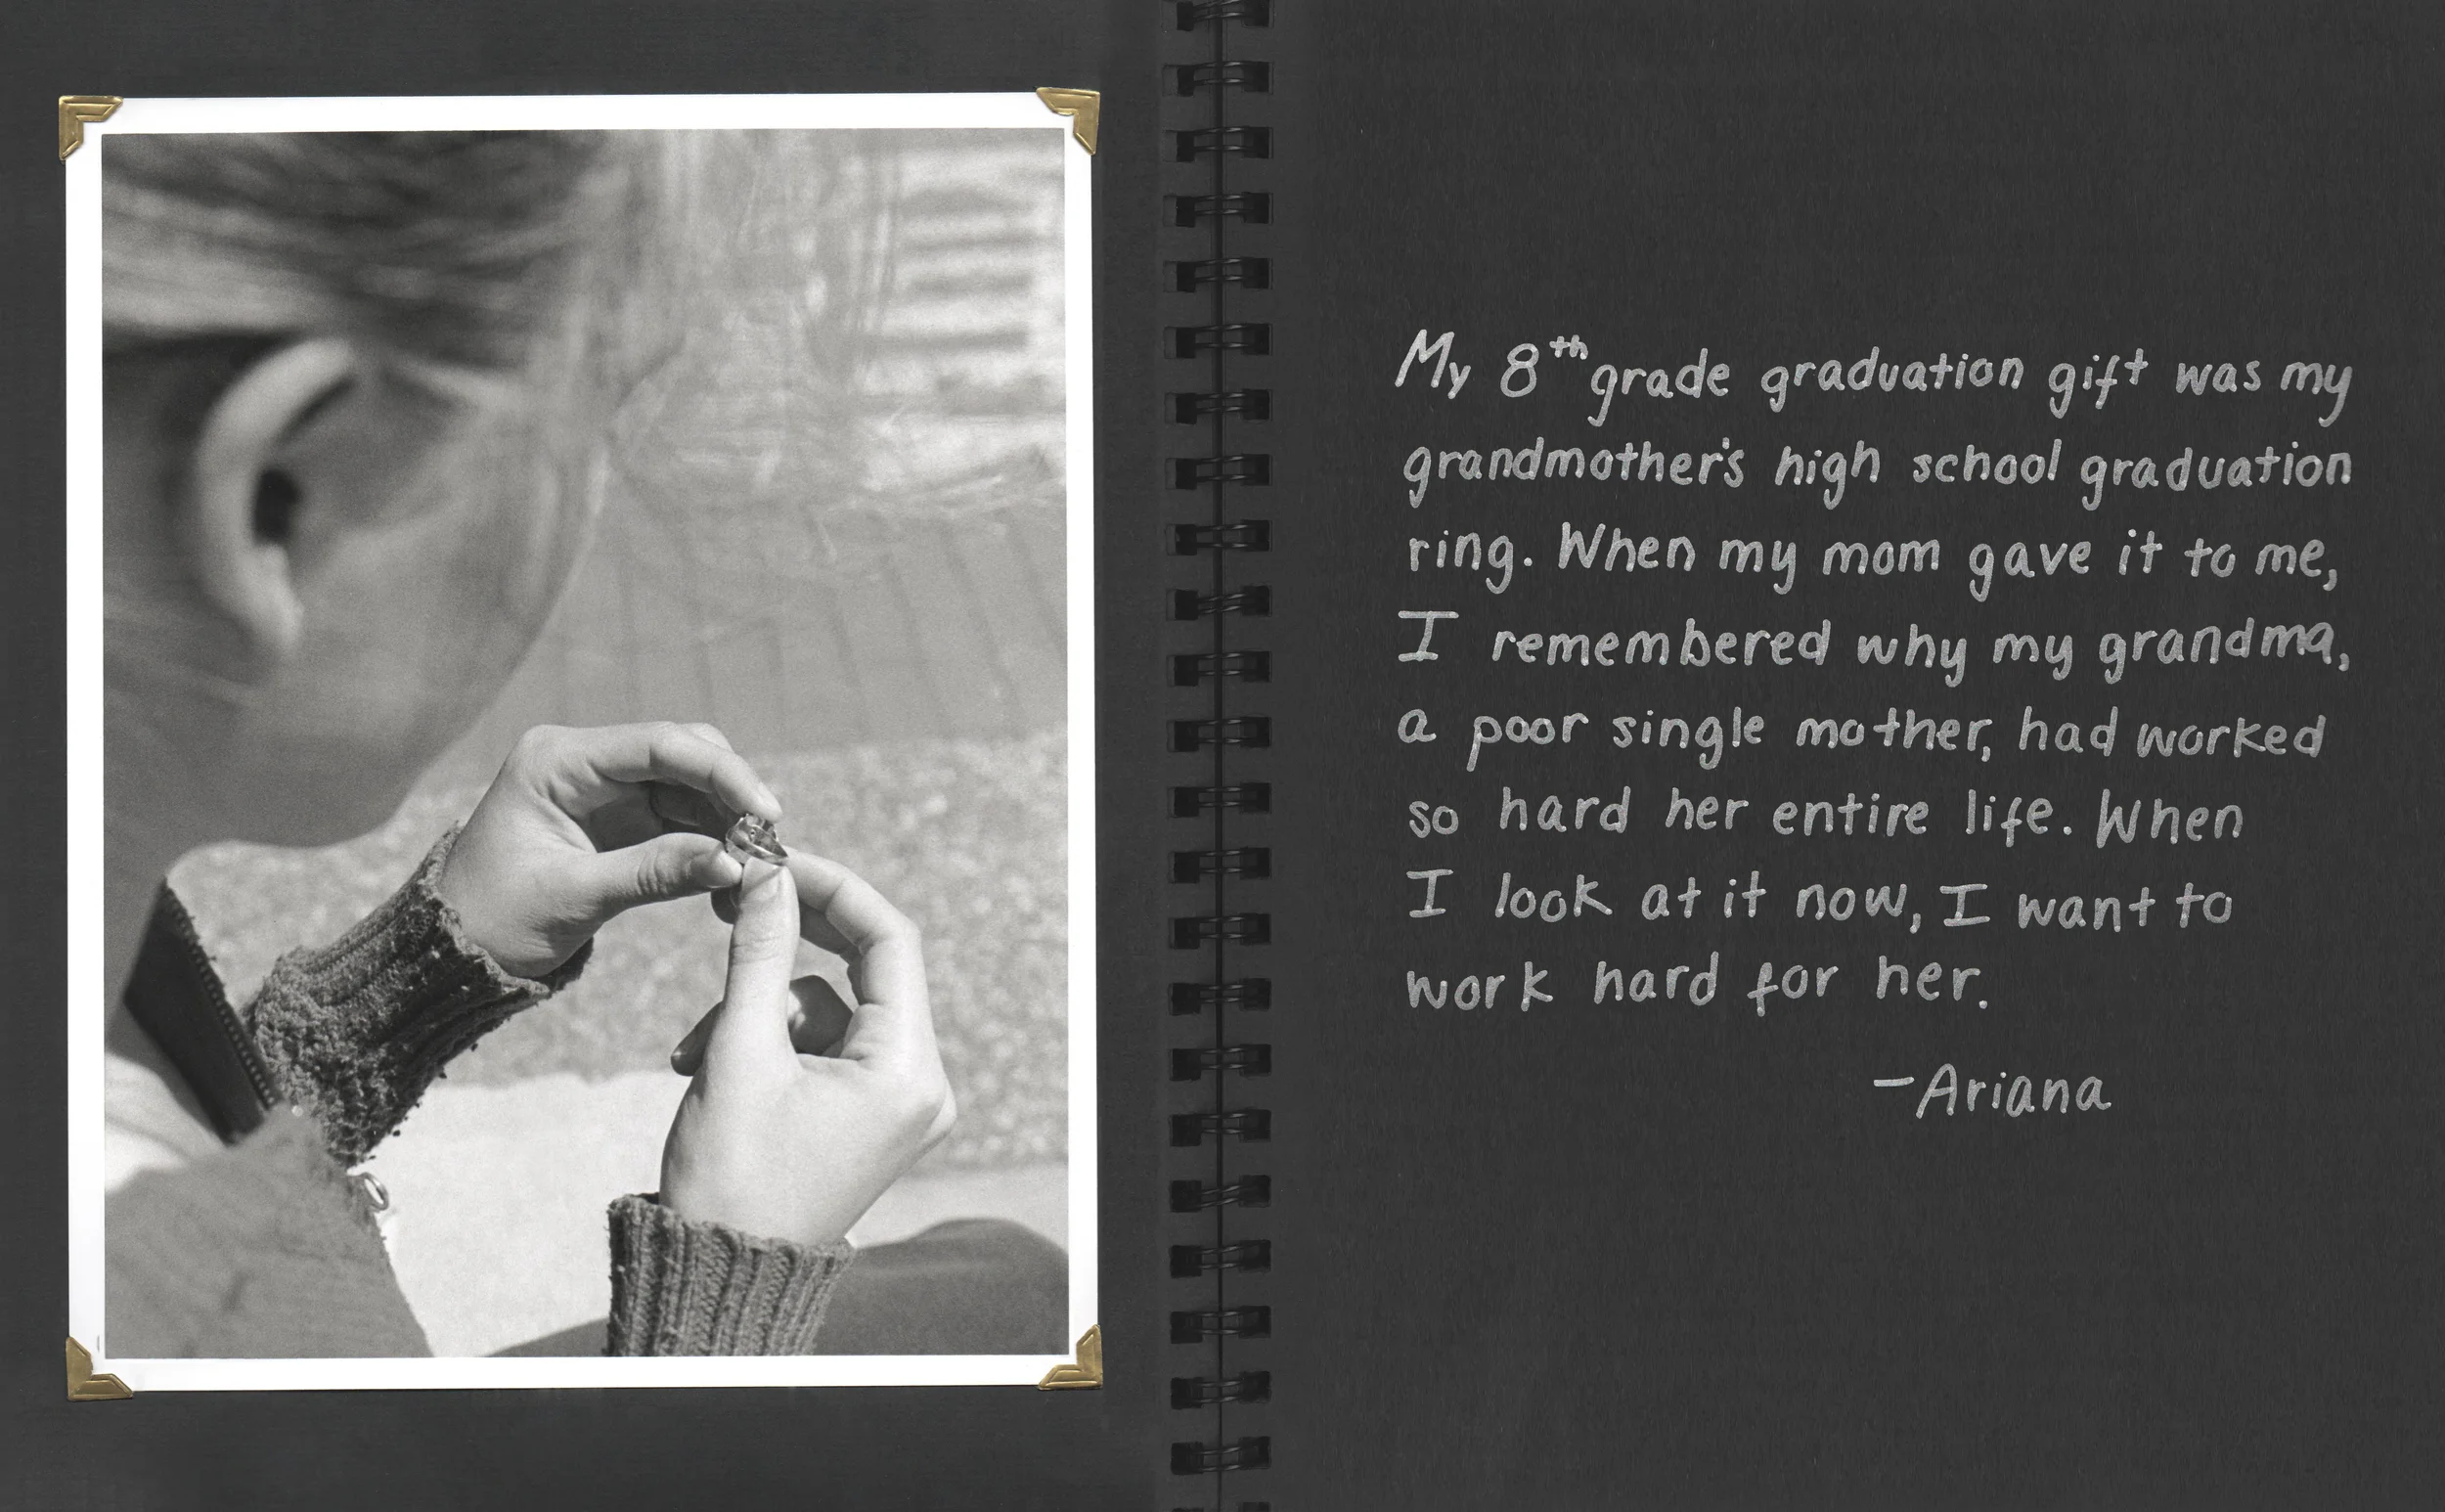 My 8th grade graduation gift was my
grandmother's high school graduation
ring. When my mom gave it to me,
I remembered why my grandma,
a poor single mother, had worked
so hard her entire life. When
I look at it now, I want to
work hard for her.
-Ariana